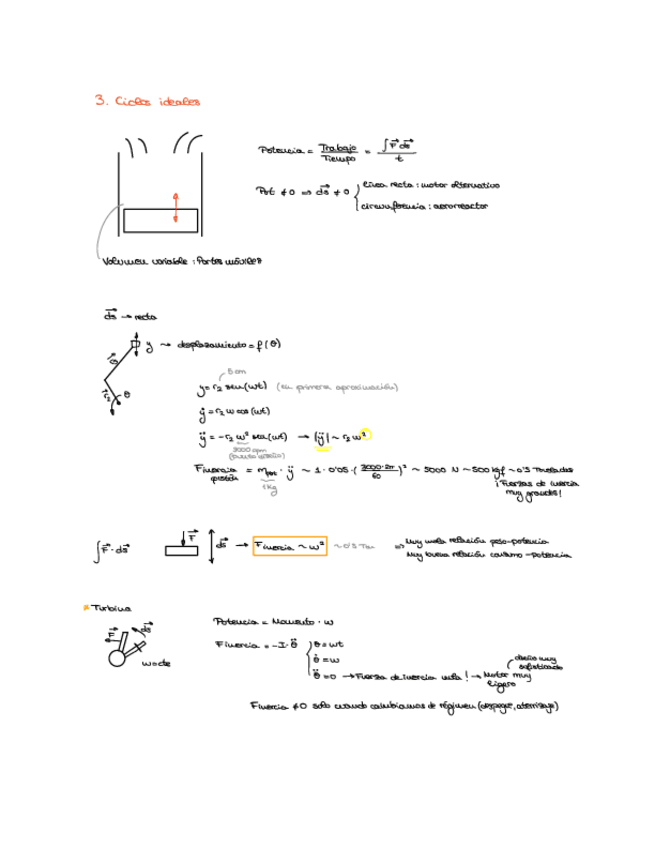 3. Ciclos ideales
Potencia = Trabajo / Tiempo = ∫F⃗ ds⃗ / t
Pot ≠ 0 ⇒ ds⃗ ≠ 0 { línea recta : motor alternativo
circunferencia : aerorreactor
Volumen variable : Partes móviles
ds⃗ → recta
y → desplazamiento = f(θ)
θ
5 cm
y = r₂ sen(wt) (en primera aproximación)
ẏ = r₂ w cos(wt)
ÿ = -r₂ w² sen(wt) → |ÿ| ~ r₂ w²
3000 rpm
Finercia pistón = m · ÿ ~ 1 · 0'05 · (3000·2π / 60)² ~ 5000 N ~ 500 kgf ~ 0'5 Toneladas
1 kg
¡Fuerzas de inercia
muy grandes!
∫F⃗ · ds⃗
F⃗ ds⃗ → Finercia ~ w² ~ 0'5 Ton ⇒ Muy mala relación peso-potencia
Muy buena relación consumo-potencia
* Turbina
F⃗ ds⃗
w = cte
Potencia = Momento · w
Finercia = -I · θ̈ } θ = wt
θ̇ = w
θ̈ = 0 → Fuerza de inercia nula! → Motor muy
ligero
diseño muy
sofisticado
Finercia ≠ 0 solo cuando cambiamos de régimen (despegue, aterrizaje)